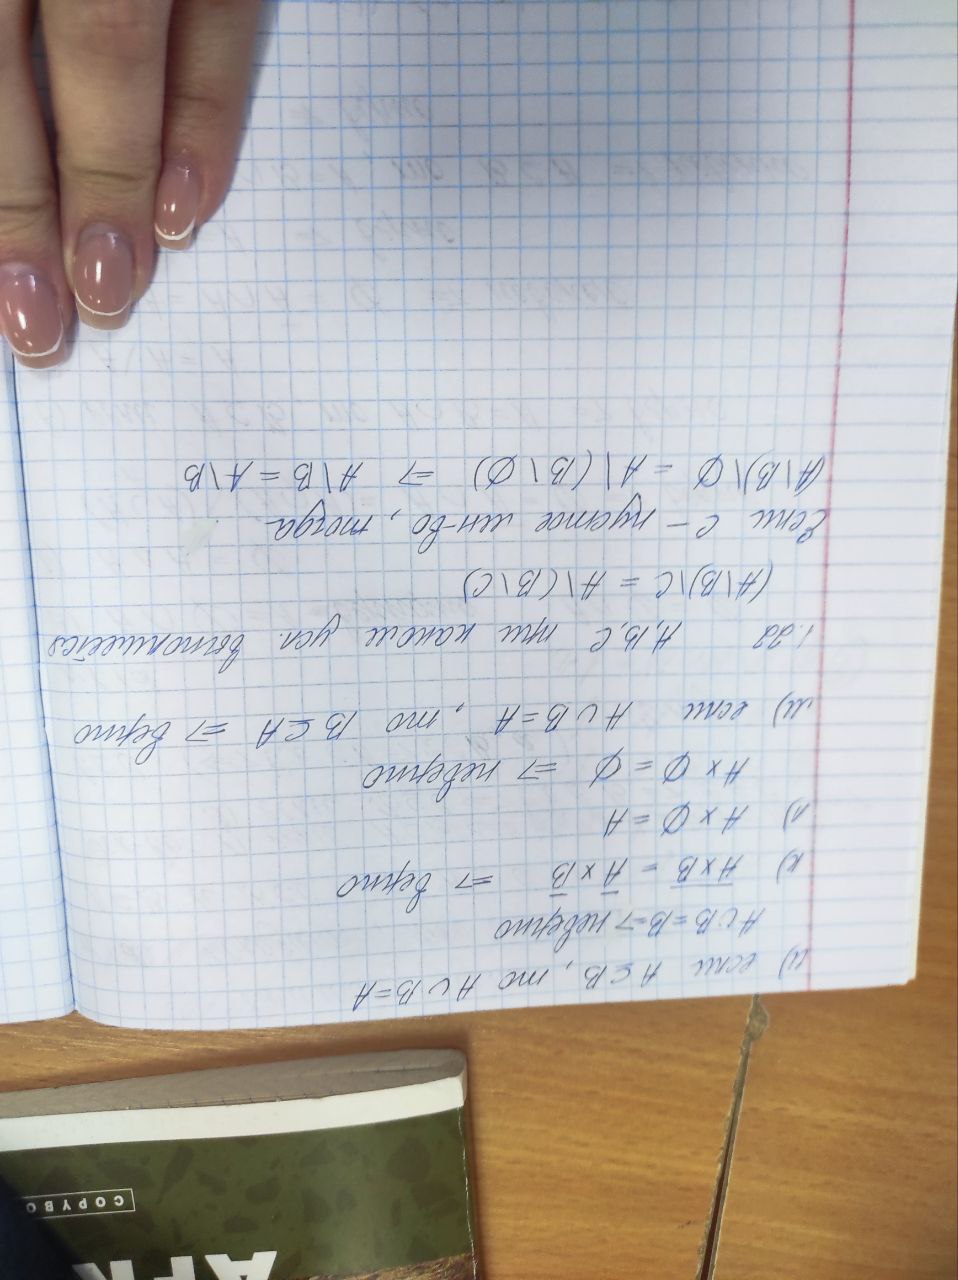 AFR
COPYBO
и) если A ⊆ B, то A ∪ B = A
A ∪ B = B => неверно
к) A̅ x B̅ = A̅ x B̅ => верно
л) A x ∅ = A
A x ∅ = ∅ => неверно
м) если A ∪ B = A, то B ⊆ A => верно
1.22 A, B, C при каком усл. выполняется
(A\B)\C = A\(B\C)
Если C - пустое мн-во, тогда
(A\B)\∅ = A\(B\∅) => A\B = A\B